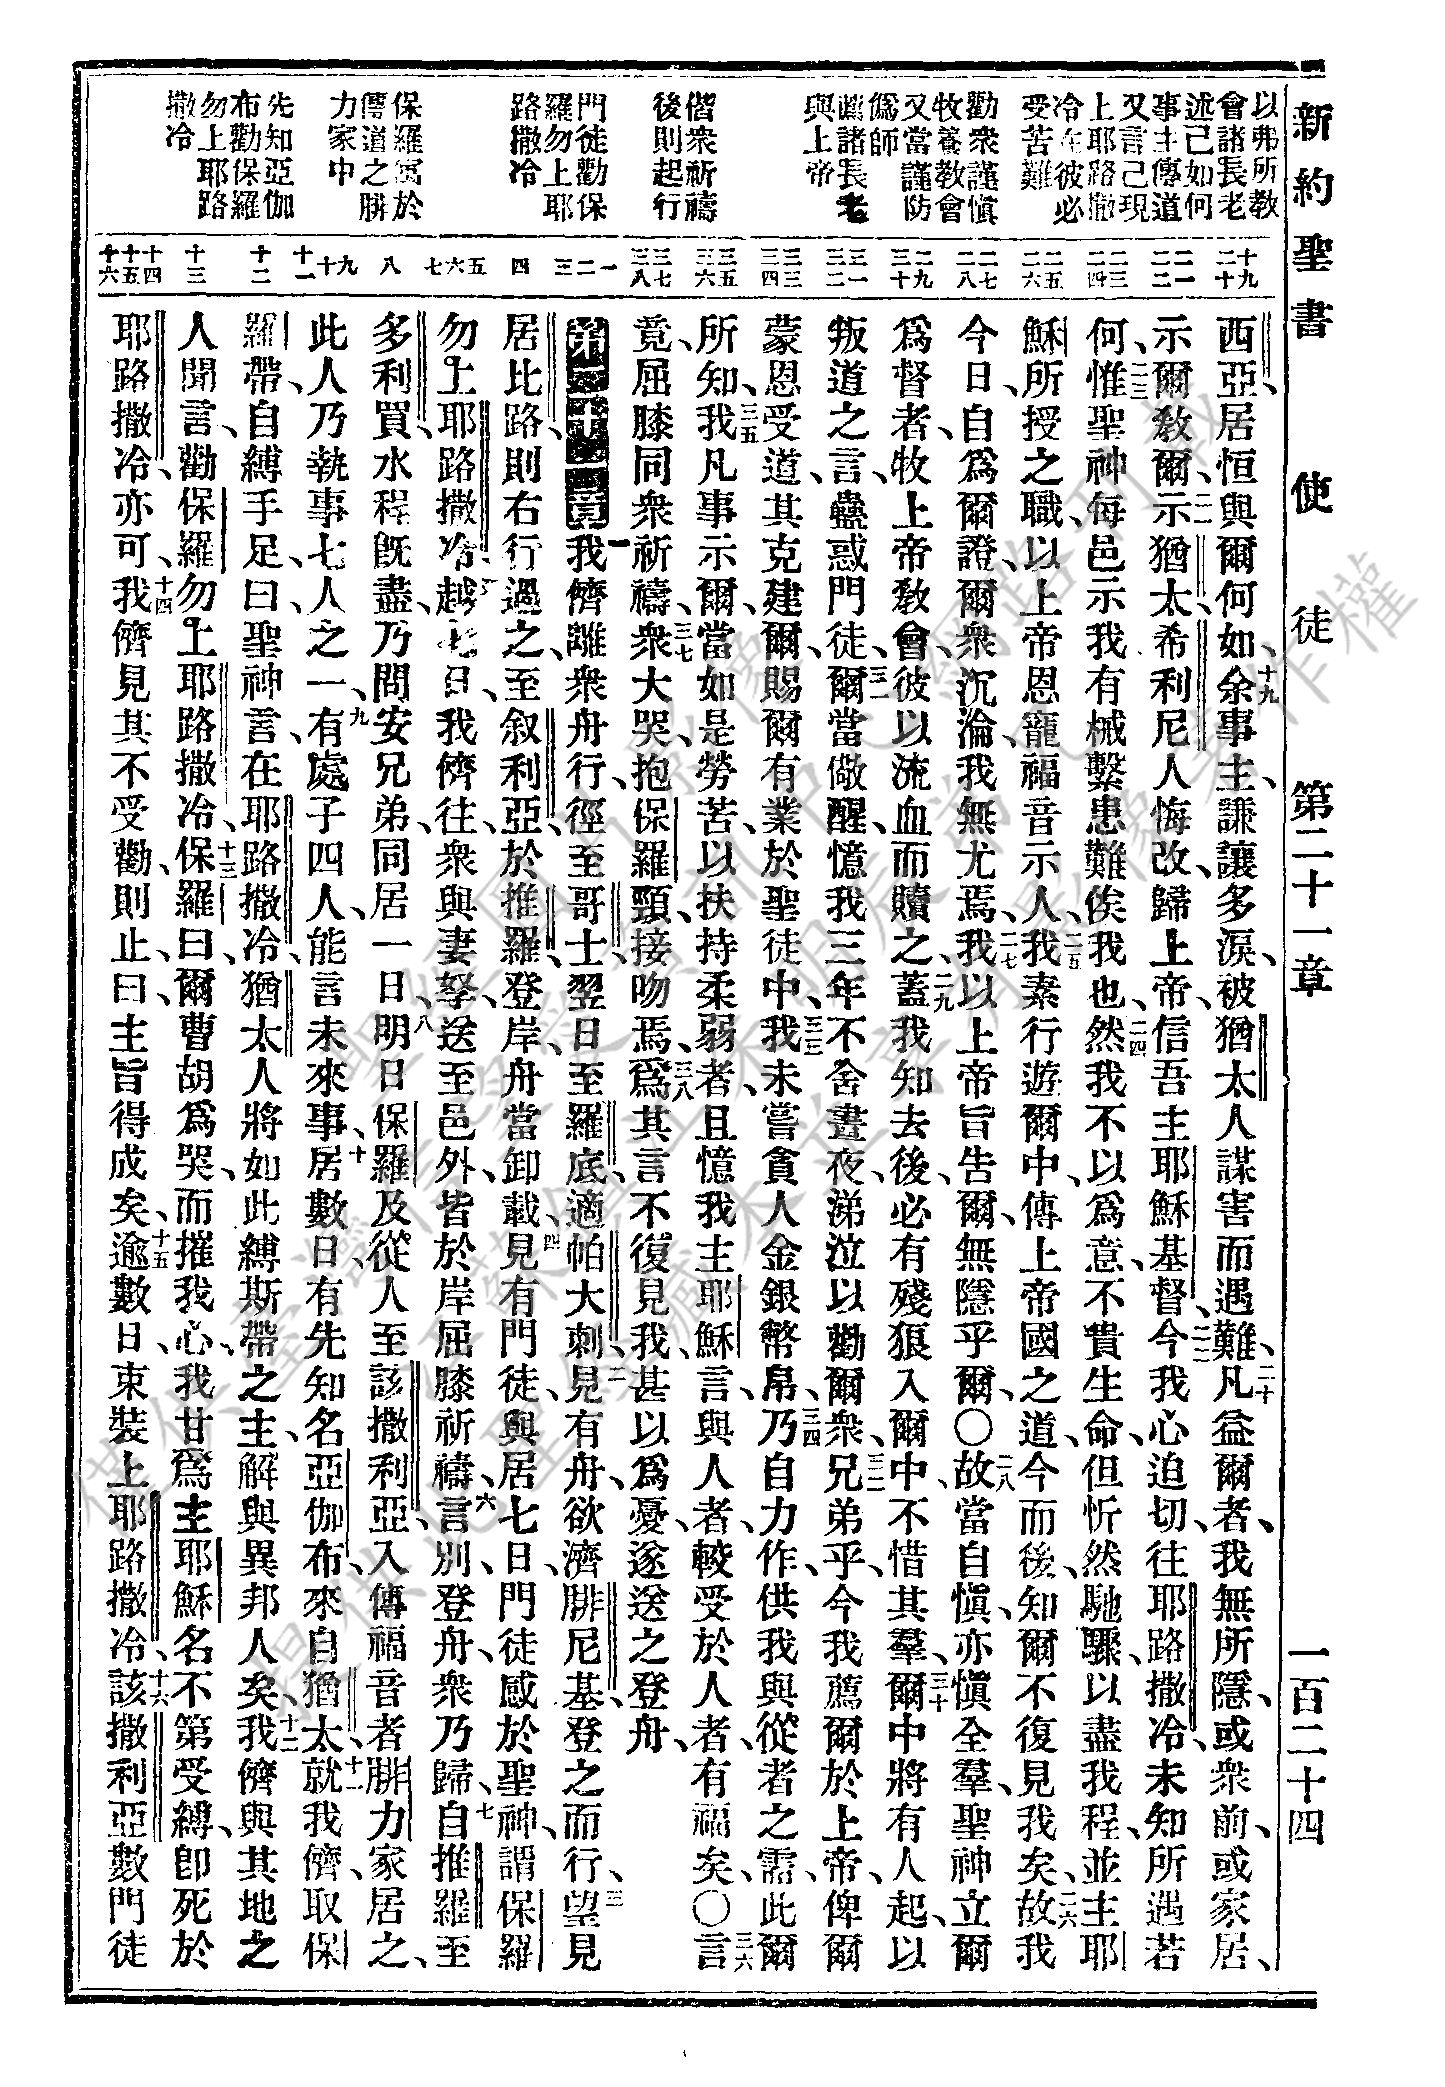 新約聖書 使徒 第二十一章 一百二十四
以弗所教
會諸長老
述己如何
事主傳道
又言己現
上耶路撒
冷在彼必
受苦難
勸眾謹慎
牧養教會
又當謹防
僞師
薦諸長老
與上帝
偕眾祈禱
後則起行
門徒勸保
羅勿上耶
路撒冷
保羅寓於
傳道之腓
力家中
先知亞伽
布勸保羅
勿上耶路
撒冷
十九
二十
二一
二二
二三
二四
二五
二六
二七
二八
二九
三十
三一
三二
三三
三四
三五
三六
三七
三八
一
二
三
四
五
六
七
八
九
十
十一
十二
十三
十四
十五
十六
西亞、居恒與爾何如、十九余事主、謙讓多淚、被猶太人謀害而遇難、二十凡益爾者、我無所隱、或眾前、或家居、
示爾教爾、二一示猶太希利尼人悔改、歸上帝、信吾主耶穌基督、二二今我心迫切、往耶路撒冷、未知所遇若
何、二三惟聖神每邑示我有械繫患難俟我也、二四然我不以爲意、不貴生命、但忻然馳驟、以盡我程、並主耶
穌所授之職、以上帝恩寵福音示人、二五我素行遊爾中、傳上帝國之道、今而後、知爾不復見我矣、二六故我
今日、自爲爾證、爾眾沉淪、我無尤焉、二七我以上帝旨告爾、無隱乎爾、〇二八故當自慎、亦慎全羣、聖神立爾
爲督者、牧上帝教會、彼以流血而贖之、二九蓋我知去後、必有殘狼入爾中、不惜其羣、三十爾中將有人起、以
叛道之言、蠱惑門徒、三一爾當儆醒、憶我三年不舍晝夜、涕泣以勸爾眾、三二兄弟乎、今我薦爾於上帝、俾爾
蒙恩受道、其克建爾、賜爾有業於聖徒中、三三我未嘗貪人金銀幣帛、三四乃自力作、供我與從者之需、此爾
所知、三五我凡事示爾、當如是勞苦、以扶持柔弱者、且憶我主耶穌言、與人者、較受於人者、有福矣、〇三六言
竟、屈膝同眾祈禱、三七眾大哭、抱保羅頸、接吻焉、三八爲其言不復見我、甚以爲憂、遂送之登舟、
第二十一章 一我儕離眾舟行、徑至哥士、翌日至羅底、適帕大剌、二見有舟、欲濟腓尼基、登之而行、三望見
居比路、則右行過之、至叙利亞、於推羅登岸、舟當卸載、四見有門徒、與居七日、門徒感於聖神、謂保羅
勿上耶路撒冷、五越七日、我儕往、眾與妻孥、送至邑外、皆於岸屈膝祈禱、六言別、登舟、眾乃歸、七自推羅至
多利買、水程旣盡、乃問安兄弟、同居一日、八明日保羅及從人至該撒利亞、入傳福音者腓力家居之、
此人乃執事七人之一、九有處子四人、能言未來事、十居數日、有先知名亞伽布、來自猶太、十一就我儕、取保
羅帶、自縛手足曰、聖神言、在耶路撒冷、猶太人將如此縛斯帶之主、解與異邦人矣、十二我儕與其地之
人聞言、勸保羅勿上耶路撒冷、十三保羅曰、爾曹胡爲哭、而摧我心、我甘爲主耶穌名、不第受縛、卽死於
耶路撒冷亦可、十四我儕見其不受勸、則止、曰、主旨得成矣、十五逾數日、束裝上耶路撒冷、十六該撒利亞數門徒